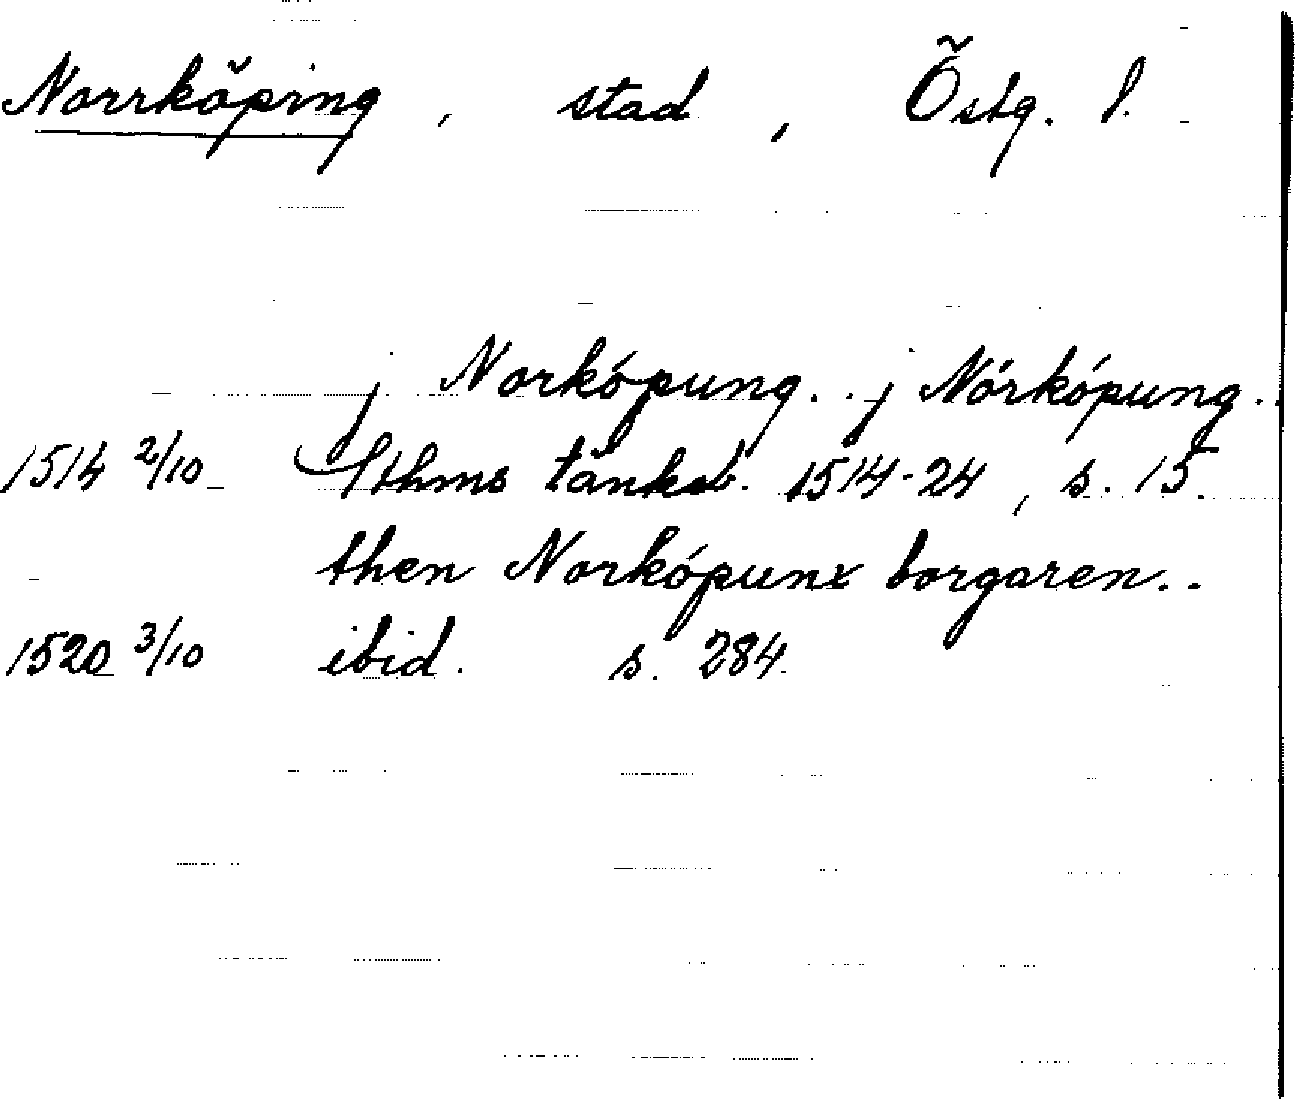 Norrköping, stad, Östg. l.
j Norkópung. . j Nórkópung. .
1514 2/10 Sthms tänkeb. 1514-24, s. 15.
then Norkópunx borgaren. .
1520 3/10 ibid. s. 284.